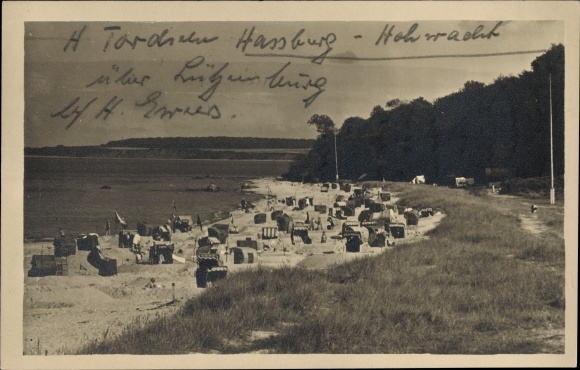 H Tordsen Hassburg - Hohwacht
über Lützenburg
b/ H. Ewers.